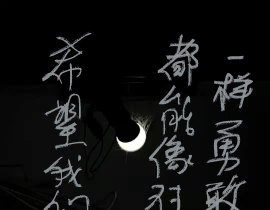 希望我们
都能像
一样勇敢